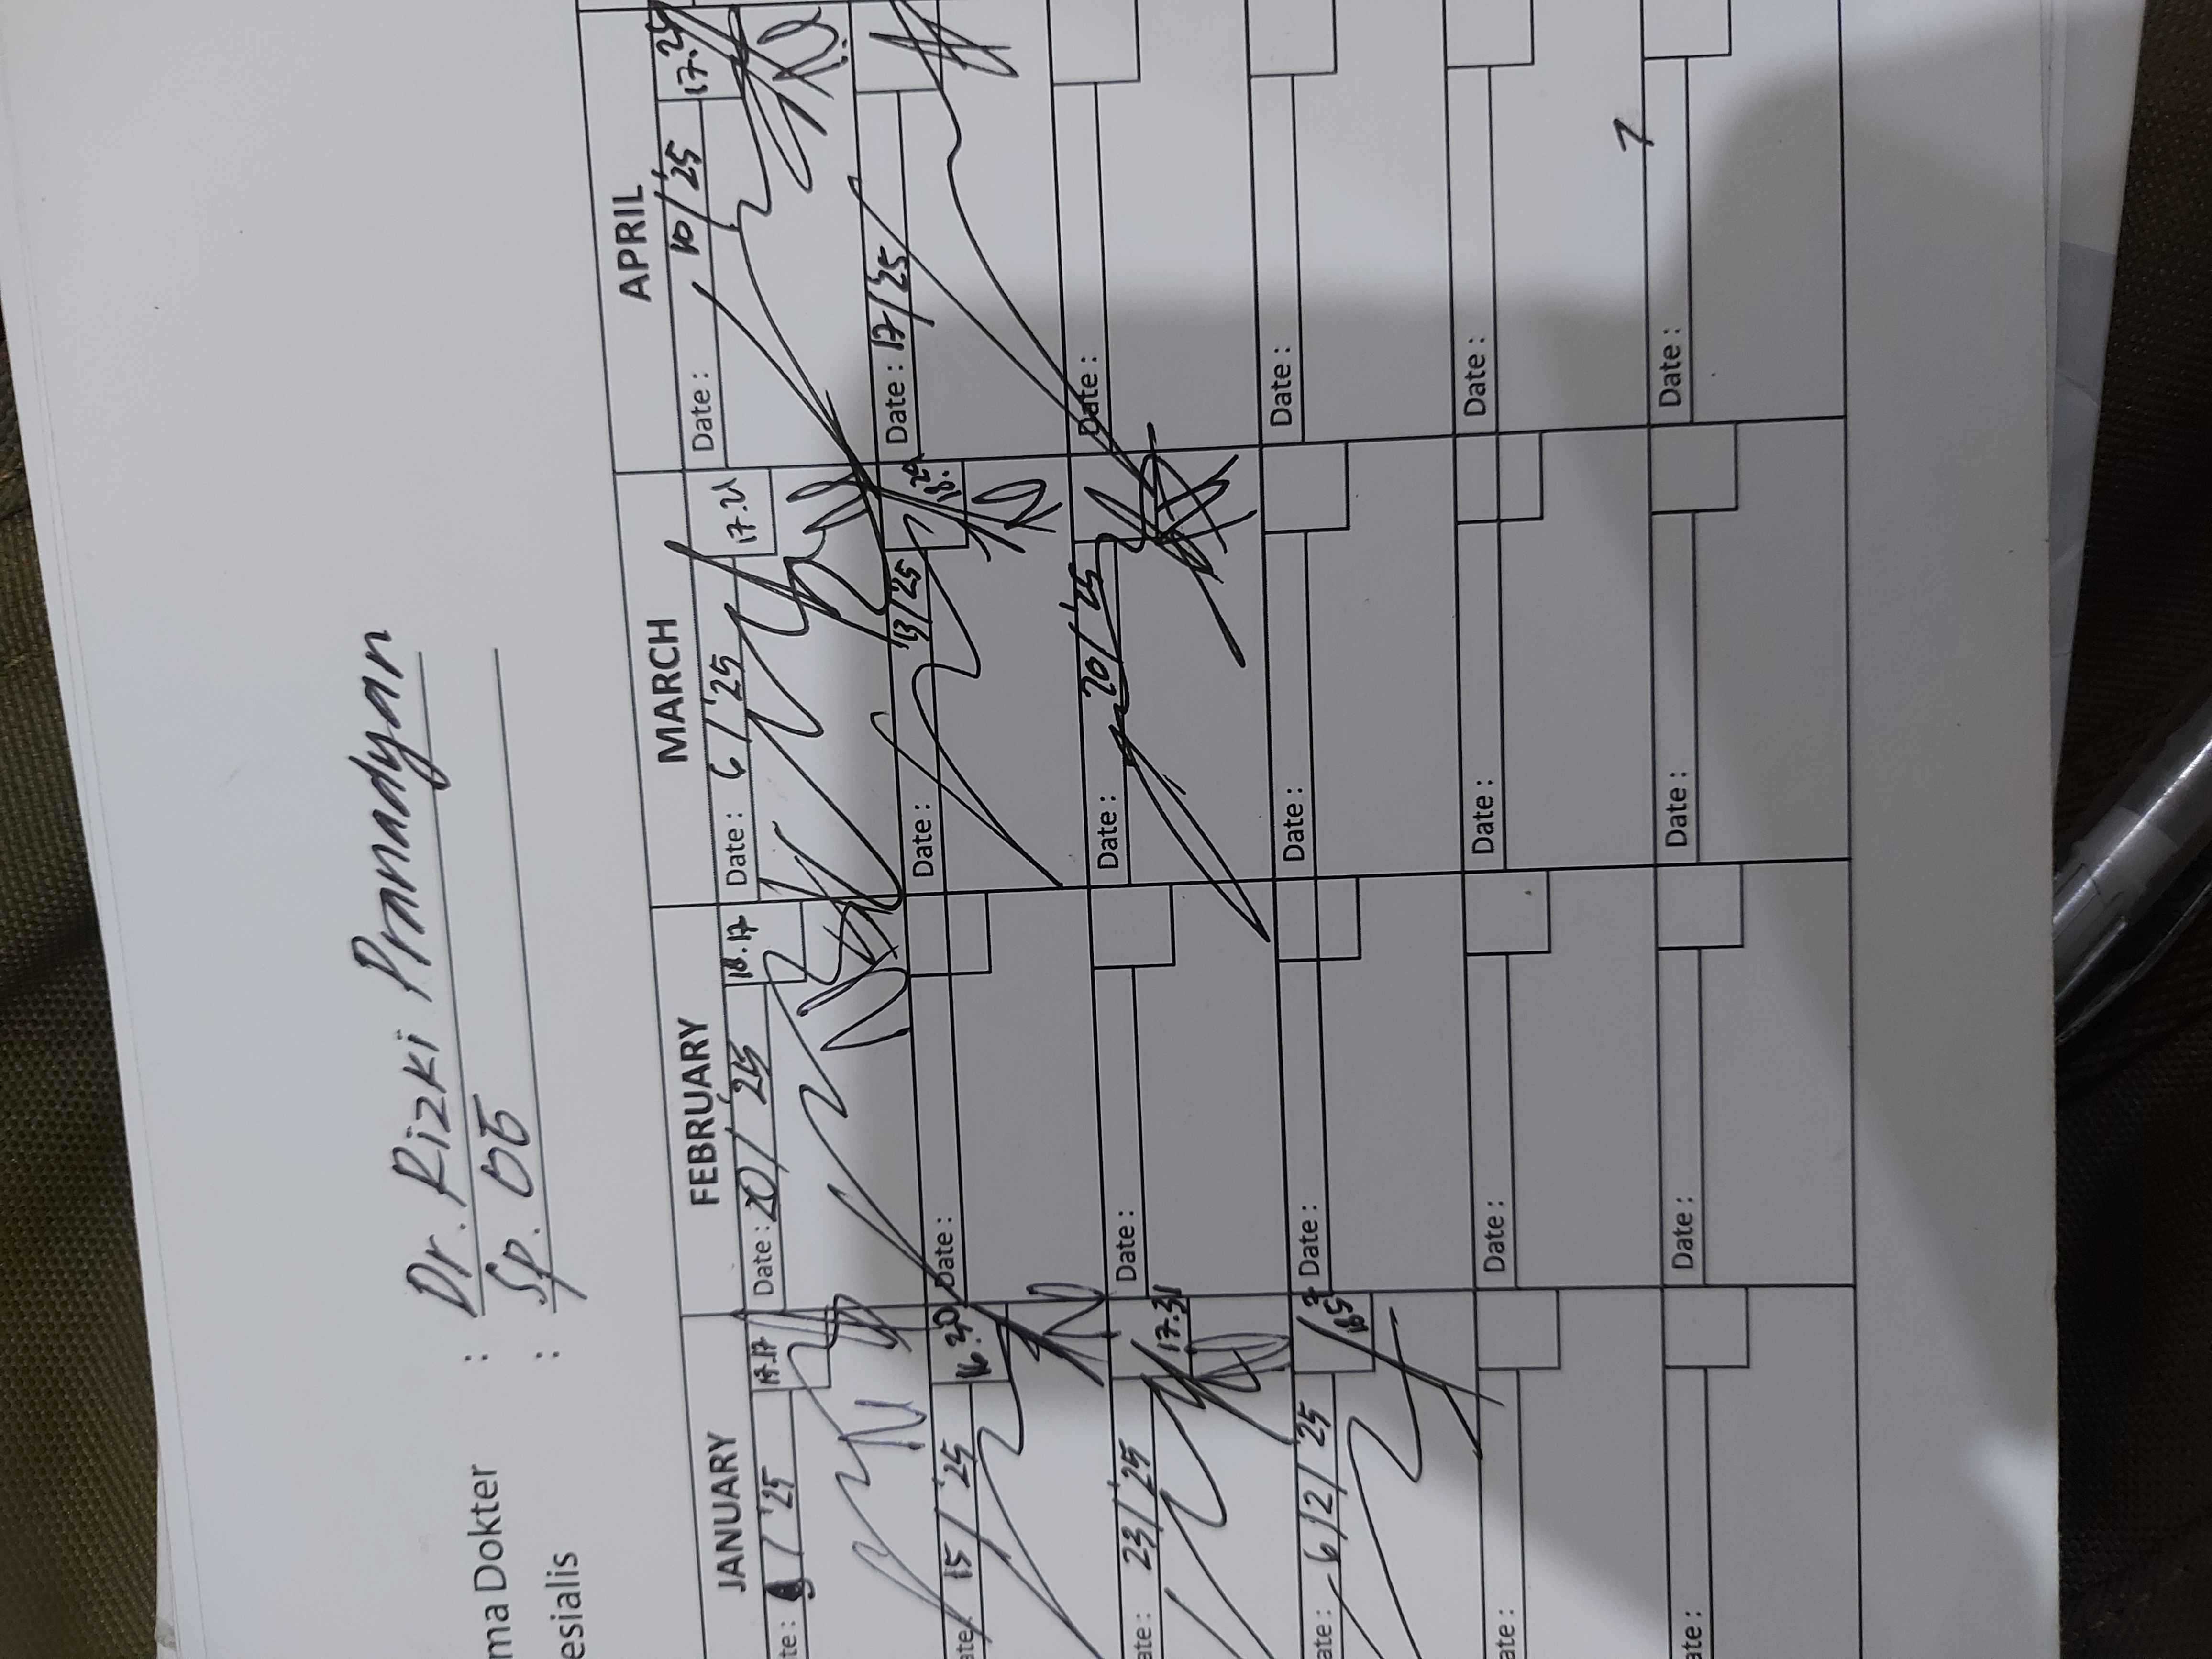 ma Dokter : Dr. Rizki Pramadyan
esialis : Sp. OG
JANUARY FEBRUARY MARCH APRIL
te : / '25 Date : 20 / '25 18.17 Date : 6 / '25 17.21 Date : 10 / '25 17.25
ate 15 / '25 16.20 Date : Date : 13 / '25 18. Date : 17 / '25
ate : 23 / '25 17.31 Date : Date : 20 / '25 Date :
ate : 6/2 / '25 Date : Date : Date :
ate : Date : Date : Date :
ate : Date : Date : Date :